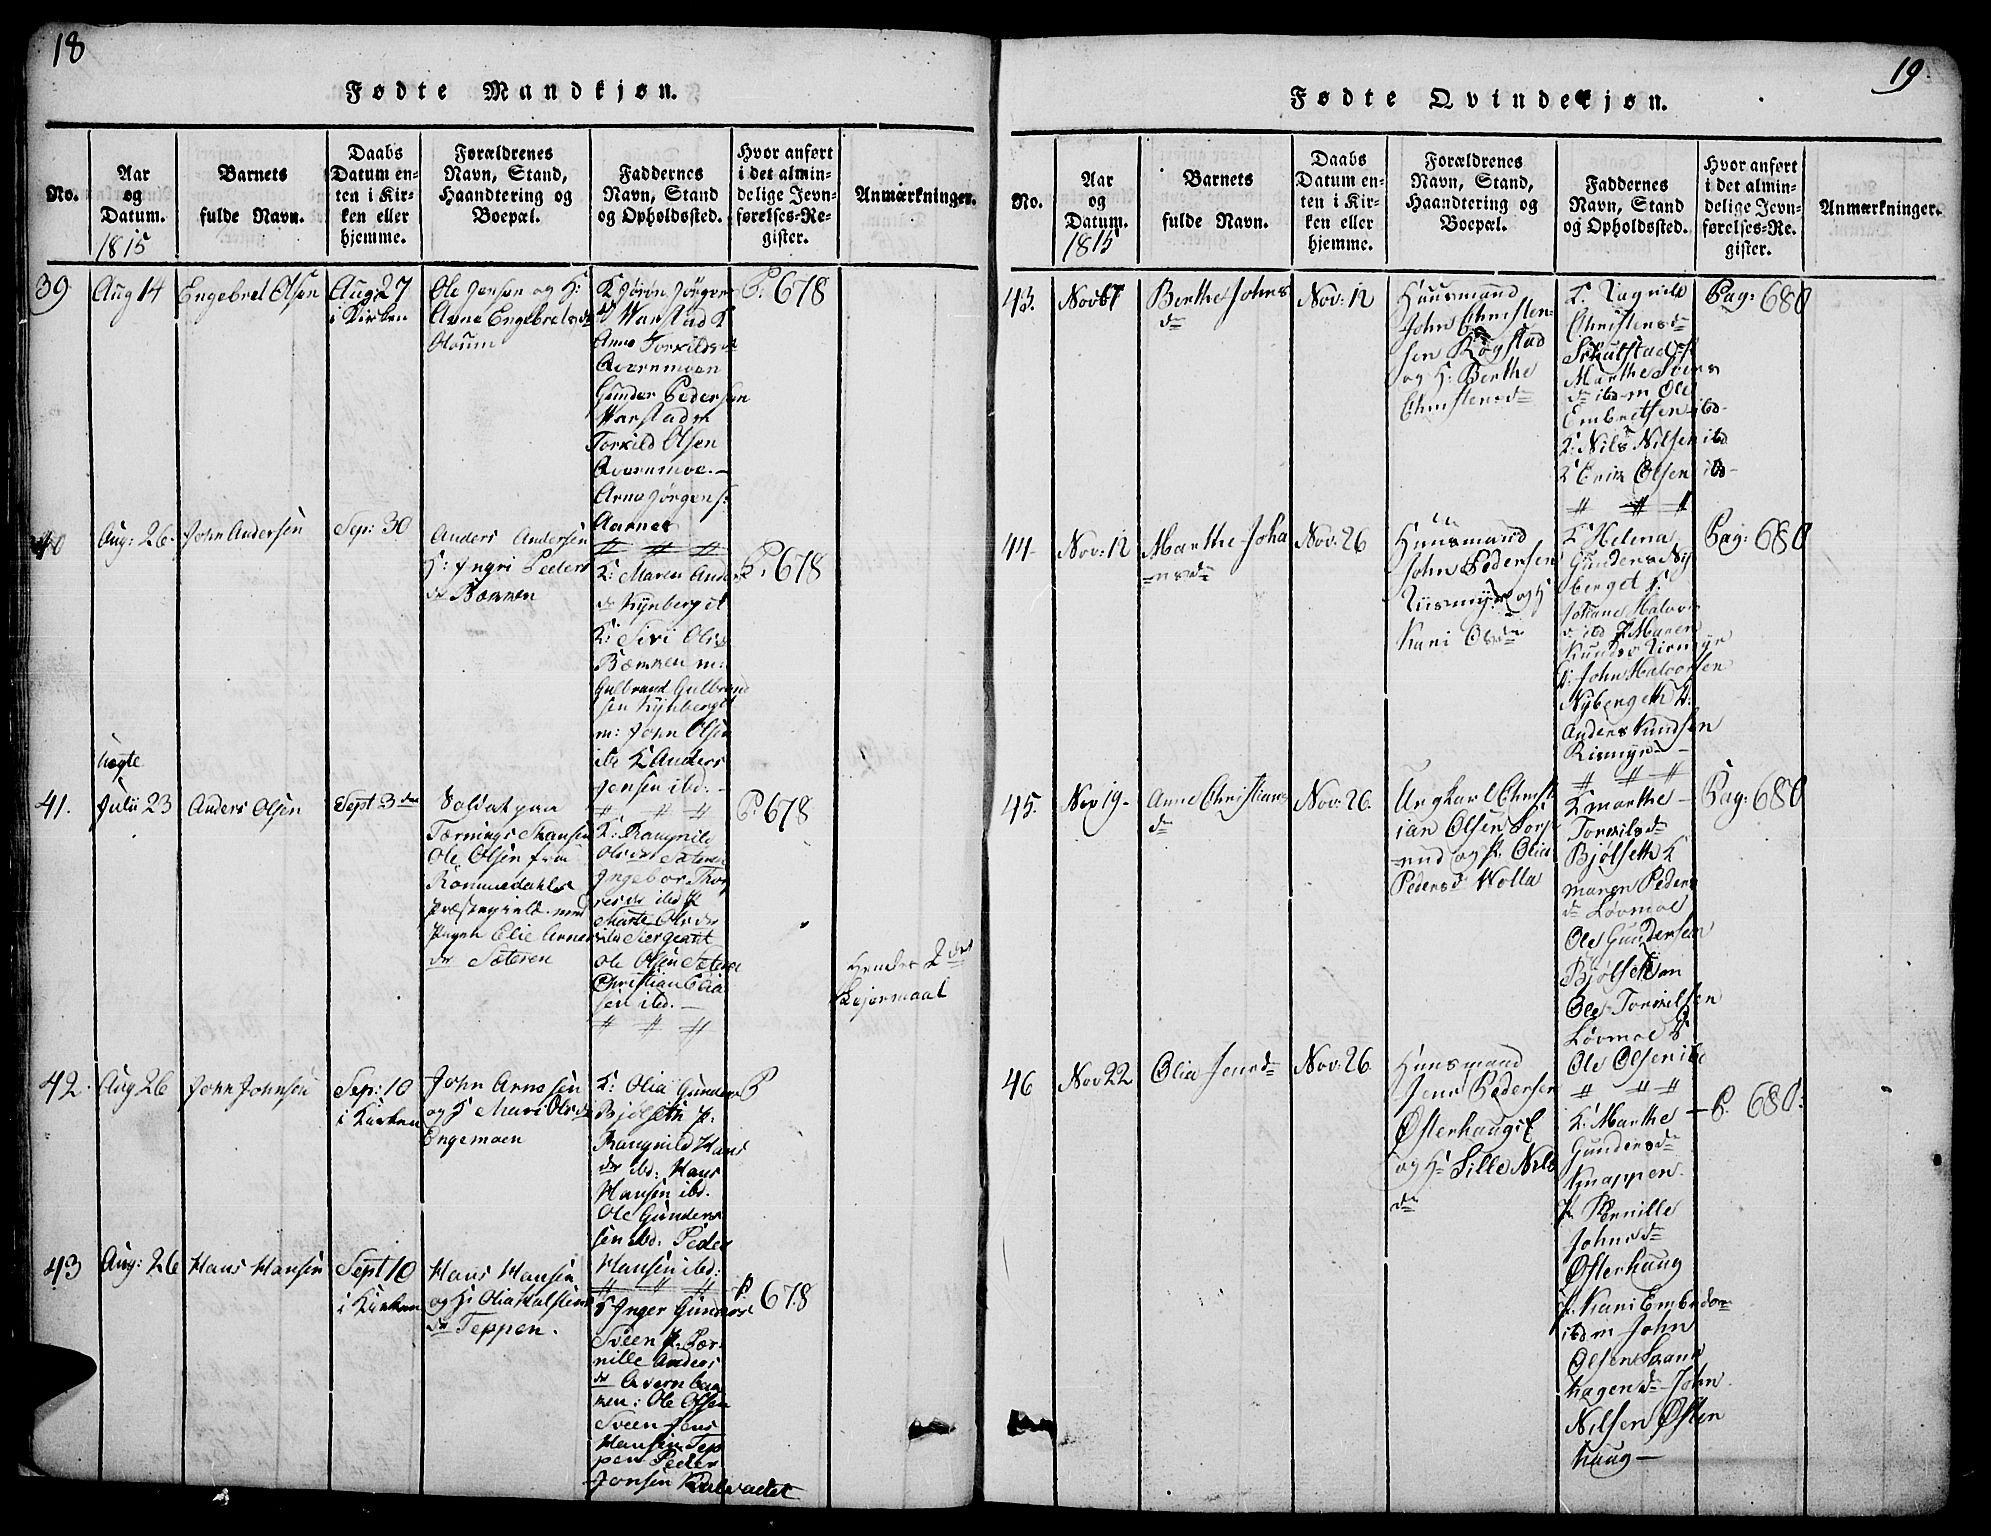 18
Fødte Mandkjøn.
No.
Aar
og
Datum.
1815
Barnets
fulde Navn.
Daabs
Datum en-
ten i Kir-
ken eller
hjemme.
Forældrenes
Navn, Stand,
Haandtering og
Boepæl.
Faddernes
Navn, Stand
og Opholdssted.
Hvor anført
i det almin-
delige Jevn-
førelses-Re-
gister.
Anmærkninger.
39
Aug 14
Engebret Olsen
Aug 27
i Kirken
Ole Jensen og H:
Anna Engebretsdr
Oloum
Jørgens
Anne Torkildsdr
Qvernmoen
Gunder Pedersen
Torkild Olsen
Qvernmoe.
Arne Jørgens:
P. 678
40
Aug: 26.
John Andersen
Sep: 30
Anders Andersen
H: Ingri Peders
dr Bæcken
K: Maren Anders
dr Kynberget
K: Siri Olsdr
Bæcken m:
Gulbrand Gulbrand
sen Kynberget
m: John Olsen
ibd K Anders
Jensen ibd:
P. 678
41.
Julii 23
Anders Olsen
Sept 3
Soldat paa
Tærnings Skansen
Ole Olsen fra
Rommedahls
Præstegield. med
Pigen Elie Arnes
dr Sæteren
K: Rangnild
Olsdr Sæteren
Ingebor Thor
ibd P
Marte Olsdr
ibd Siergeant
Ole Olsen Sæteren
Christian Elia
sen ibd.
P. 678
Hendes 2det
Leiermaal
42.
Aug 26
John Johnsen
Sep: 10
i Kirken
John Arnesen
og H Mari Olsdr
Engemoen
K: Olia Gunders
Bjølseth P:
Rangnild Hans
dr ibd: Hans
Hansen ibd.
Ole Gunder
sen ibd: Peder
Hansen ibd:
P
43
Aug: 26
Hans Hansen
Sept 10
i Kirken
Hans Hansen
og H: Olia Halstens
dr Teppen.
K Inger Gunders
Sveen P: Per-
nille Anders
dr Qvernbac
ken: Ole Olsen
Sveen Jens
Hansen Tep
pen Peder
Jonsen
P. 678
19
Fødte Qvindekjøn.
No.
Aar
og
Datum.
1815
Barnets
fulde Navn.
Daabs
Datum en-
ten i Kir-
ken eller
hjemme.
Forældrenes
Navn, Stand,
Haandtering og
Boepæl.
Faddernes
Navn, Stand
og Opholdssted.
Hvor anført
i det almin-
delige Jevn-
førelses-Re-
gister.
Anmærkninger.
43.
Berthe Johns
dr
Nov: 12
Huusmand
John Christen-
sen Rogstad
og H: Berthe
Christensdr
K: Ragnild
Christensdr
Skulstad P
Marthe Ivers
dr ibd m Ole
Embretsen ibd
K: Nils Nilsen ibd
K Erik Olsen ibd
Pag: 680
44
Nov: 12
Marthe Joha
nsdr
Nov: 26
Huusmand
John Pedersen
Riismyr og H
Kari Olsdr
K Helena
Gunders Ny
berget K
Johane Halvors
dr ibd P Maren
Knuds Riismyr
K: John Halvorsen
Nyberget K:
Anders Knudsen
Rismyr
Pag: 680
45.
Nov 19
Anne Christians
dr
Nov: 26.
Ungkarl Christ
ian Olsen Sors
nud og P. Olia
Pedersd Wolla
K Marthe
Torkilsdr
Bjølseth K
Maren Peders
dr Løvmoe
Ole Gundersen
Bjølseth m
Ole Torkilsen
Løvmoe K
Ole Olsen ibd
Pag: 680
46
Nov 22
Olia Jensdr
Nov: 26
Huusmand
Jens Pedersen
Østerhaug
og H: Sille Nils
dr
K: Marthe
Gundersdr
Knappen.
P. Pernille
Johnsdr
Østerhaug
P. Kari Embrdr
ibd m John
Olsen Svane
hagen dr John
Nilsen Østen
haug
P. 680.